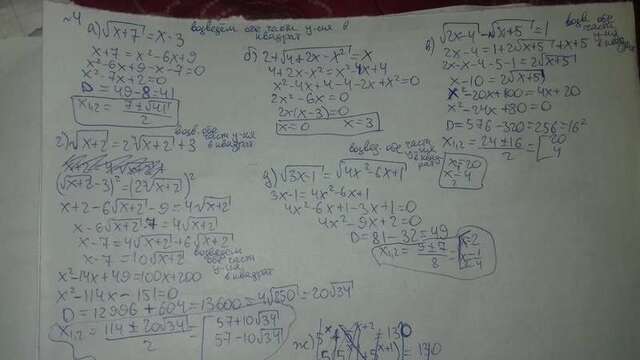 №4
а) √x+7 = x-3 возведём обе части ур-ия в квадрат
x+7 = x²-6x+9
x²-6x+9-x-7=0
x²-7x+2=0
D = 49-8=41
x₁,₂ = 7±√41 / 2
б) 2+√4+2x-x² = x
4+2x-x² = x²-4x+4
x²-4x+4-4-2x+x²=0
2x²-6x=0
2x(x-3)=0
x=0 x=3
в) √2x-4 - √x+5 = 1 возв. обе части ур-ия в квад
2x-4=1+2√x+5+x+5
2x-x-4-5-1=2√x+5
x-10=2√x+5
x²-20x+100=4x+20
x²-24x+80=0
D=576-320=256=16²
x₁,₂ = 24±16 / 2 = [20 4
x=20
x=4
г) √x+2 = 2√x+2 + 3 возв. обе части ур-ия в квадрат
(√x+2-3)²=(2√x+2)²
x+2-6√x+2-9=4√x+2
x-6√x+2-7=4√x+2
x-7=4√x+2+6√x+2
x-7=10√x+2 возведём обе части ур-ия в квадрат
x²-14x+49=100x+200
x²-114x-151=0
D=12996+604=13600=4√850=20√34
x₁,₂ = 114±20√34 / 2 = [57+10√34 57-10√34
д) √3x-1 = √4x²-6x+1 возвед. обе части ур-ия в квадрат
3x-1=4x²-6x+1
4x²-6x+1-3x+1=0
4x²-9x+2=0
D=81-32=49
x₁,₂ = 9±7 / 8 = [x=2 x=1/4
ж)